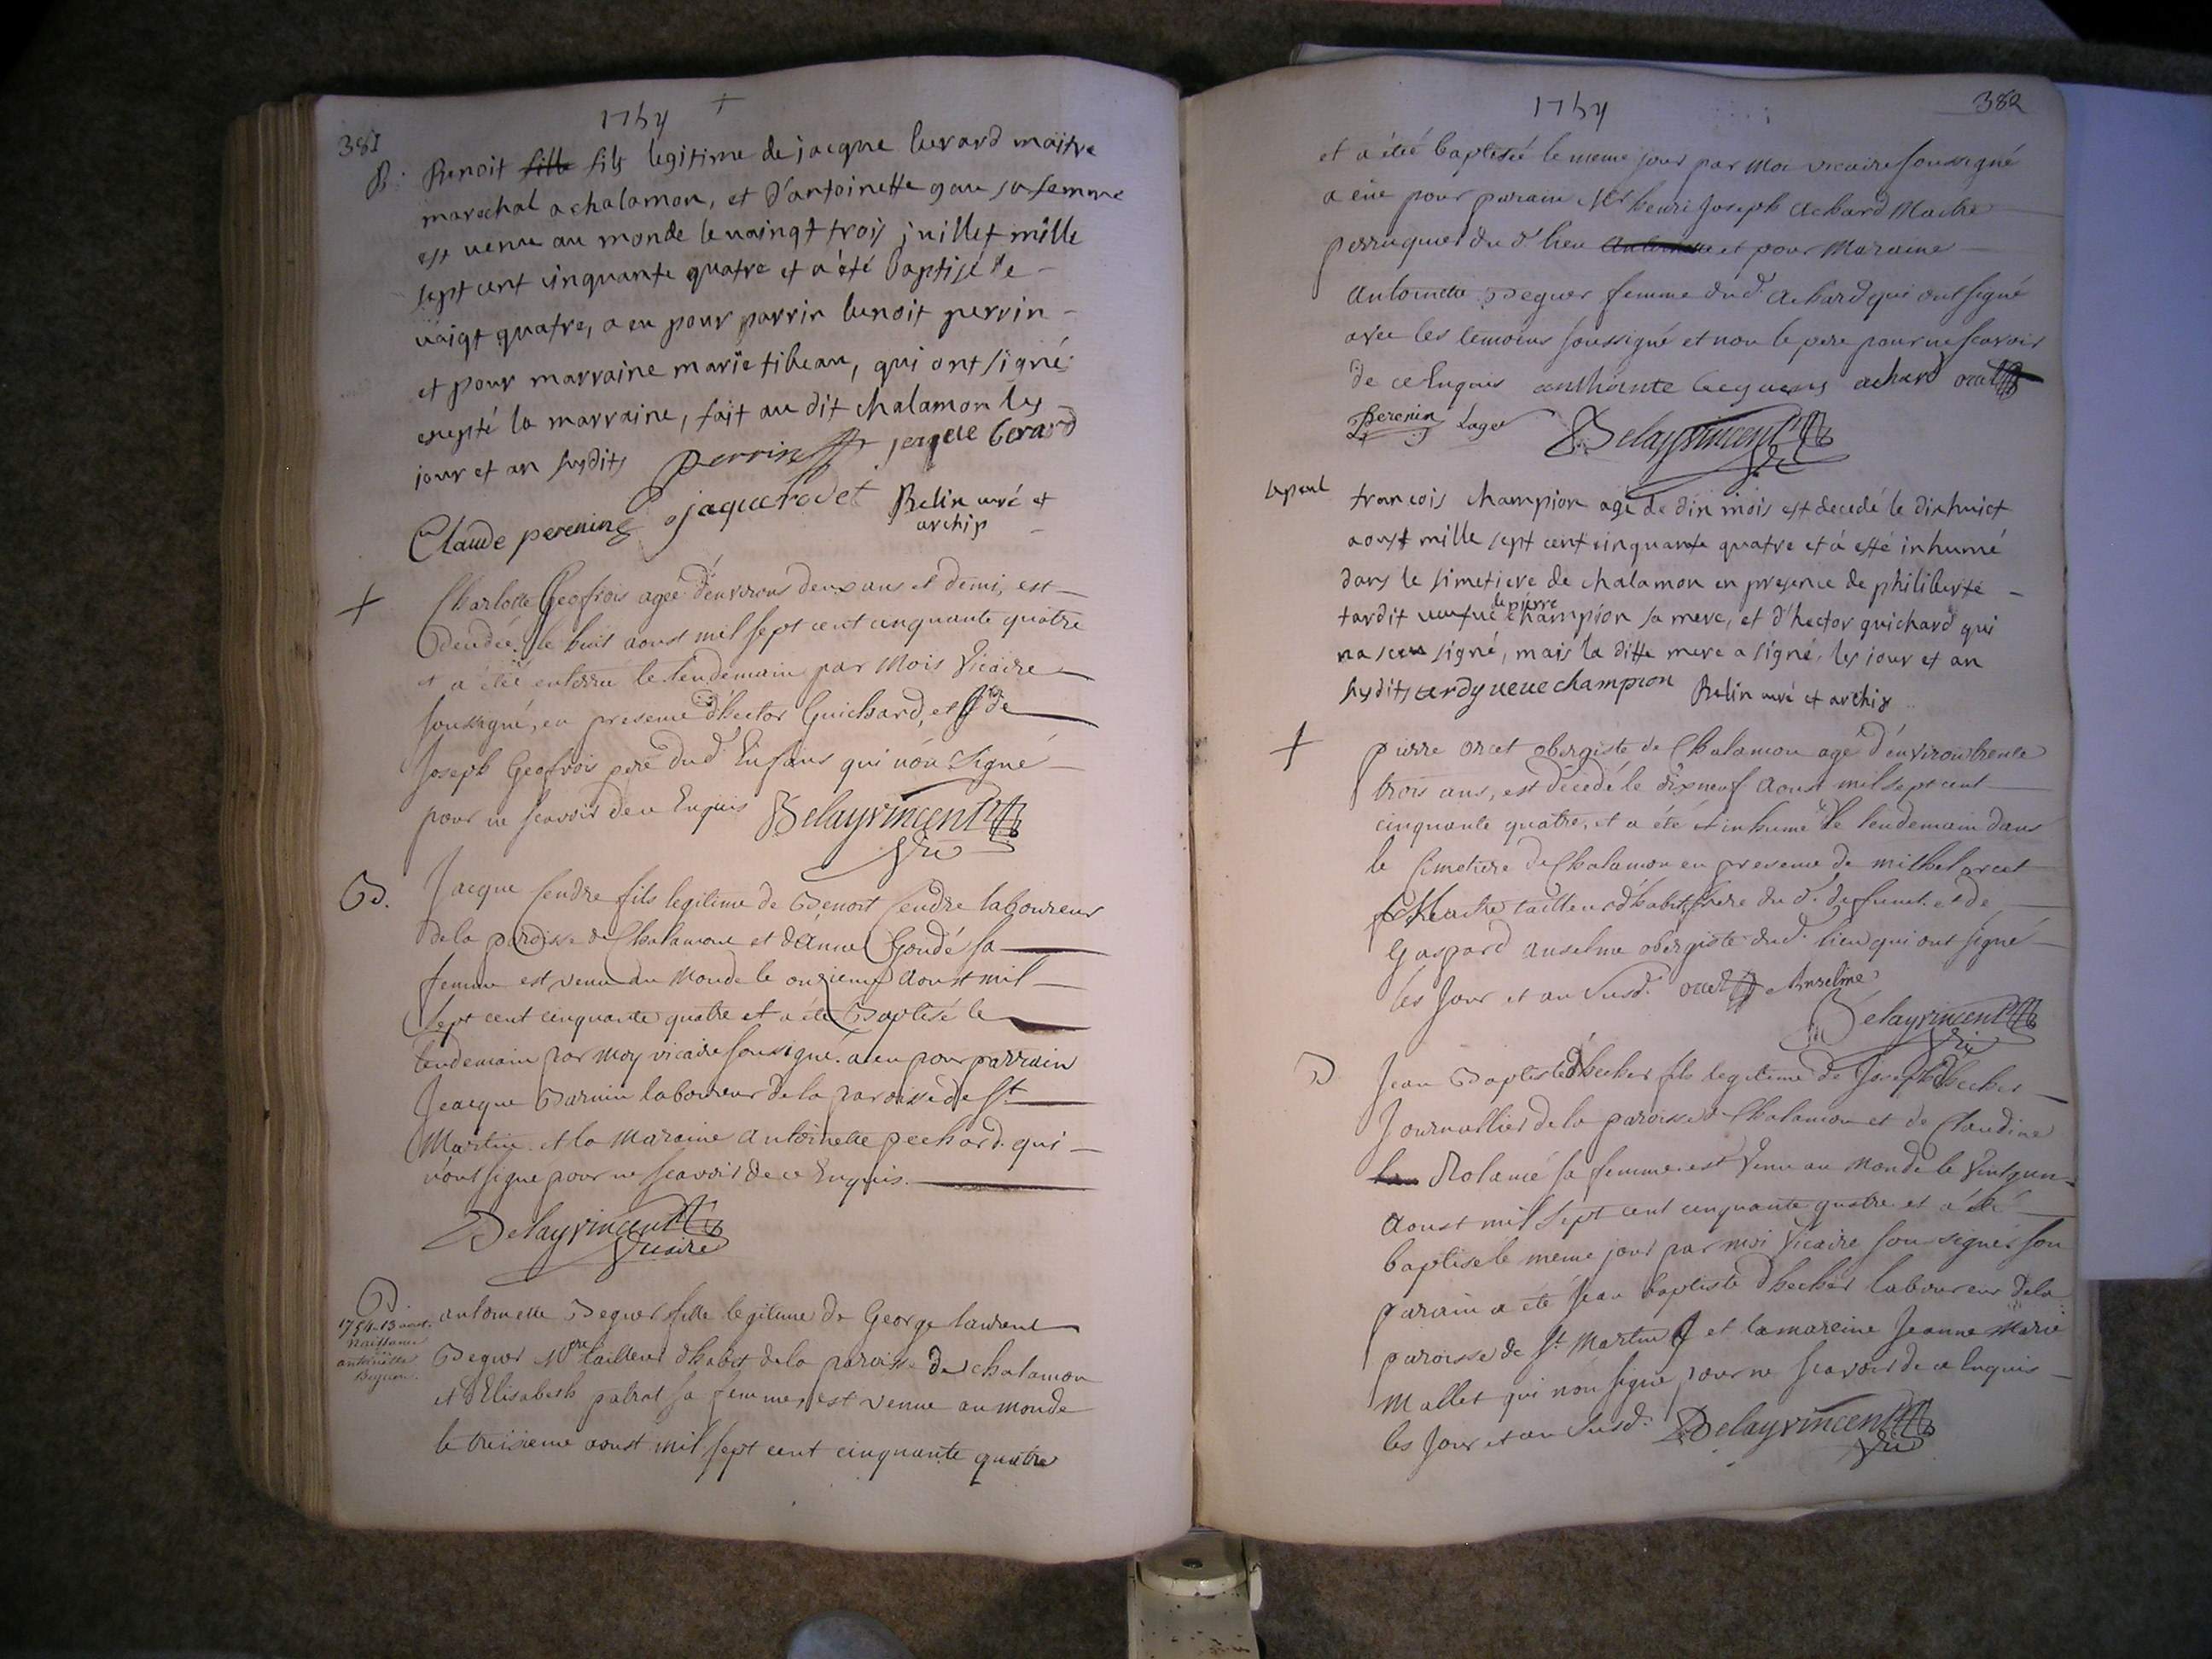 381
1754 +
B. Benoit fille fils legitime de jacque berard maitre
marechal a chalamon, et d'antoinette gou sa femme
est venu au monde le vaingt trois juillet mille
sept cent cinquante quatre et a été baptisé le
vaigt quatre, a eu pour parrin benoit perrin
et pour marraine marie tibeau, qui ont signé
exepté la marraine, fait au dit chalamon les
jour et an susdits perrin jacque berard
Claude perenin jaque rodet Relin curé et
archip
+ Charlotte Geofrois ageé d'environs deux ans et demi, est
decedeé le huit aoust mil sept cent cinquante quatre
et a étéé enterrée le lendemain par Mois vicaire
soussigné, en presence d'hector Guichard, et de
Joseph Geofrois pere dud. Enfans qui nón Signé
pour ne scavoir de ce Enquis Delayvincent
vic
B. Jacque Cendre fils legitime de Benoit Cendre laboureur
de la paroisse de Chalamon et d'Anne Goudé sa
femme est venu au Monde le onzieme aoust mil
sept cent cinquante quatre et a été Baptisé le
lendemain par Moy vicaire sousigné. a eu pour parrain
Jeacque Barnin laboureur de la paroisse de St
Martin et la Maraine Antoinette pechard qui
n'ont signe pour ne scavoir de ce Enquis.
Delayvincent
vicaire
B.
1754 13 aout.
Naissance
antoinette
Beguer.
antoinette Beguer fille legitime de George laurent
Beguer Mtre tailleur d'habit de la paroisse de chalamon
et d'Elisabeth patrat sa femme, est venue au monde
le treisieme aoust mil sept cent cinquante quatre
1754
382
et a étéé baptiséé le meme jour par Moi vicaire soussigné
a eüe pour parain Mr henri Joseph Achard Maitre
perruquier du d. lieu et pour Maraine
Antoinette Beguer femme dud. Achard qui ont signé
avec les temoins soussigné et non le pere pour ne scavoir
de ce Enquis anthointe beguers achard orcet
Perenin Lager Delayvincent
vic
francois champion agé de dix mois est decedé le dixhuict
aoust mille sept cent cinquante quatre et a esté inhumé
dans le simetiere de chalamon en presence de philiberte
tardit veufue de pierre champion sa mere, et d'hector guichard qui
na sceu signé, mais la ditte mere a signé, les jour et an
susdits tardy veue champion Relin curé et archip
+ pierre orcet obergiste de Chalamon agé d'environ trente
trois ans, est décédé le dixneuf Aoust mil sept cent
cinquante quatre, et a été inhumé le lendemain dans
le Cimetiere de Chalamon en presence de mithel orcet
Maitre tailleur d'habit, frere du d. defunct et de
Gaspard anselme obergiste dud. lieu qui ont signé
les Jour et an Susd. orcet Anselme
Delayvincent
vic
B Jean Baptiste d'hecher fils legitime de Joseph d'hecher
Journallier de la paroisse de Chalamon et de Claudine
Rolamé sa femme est venu au Monde le vintquun
Aoust mil sept cent cinquante quatre et a été
baptisé le meme jour par moi vicaire sousigné. son
parain a été jean baptiste d'hecher laboureur dela
paroisse de St Martin et la mareine Jeanne Marie
Mallet qui nón signé pour ne scavoir de ce Enquis
les Jour et an Susd. Delayvincent
vic